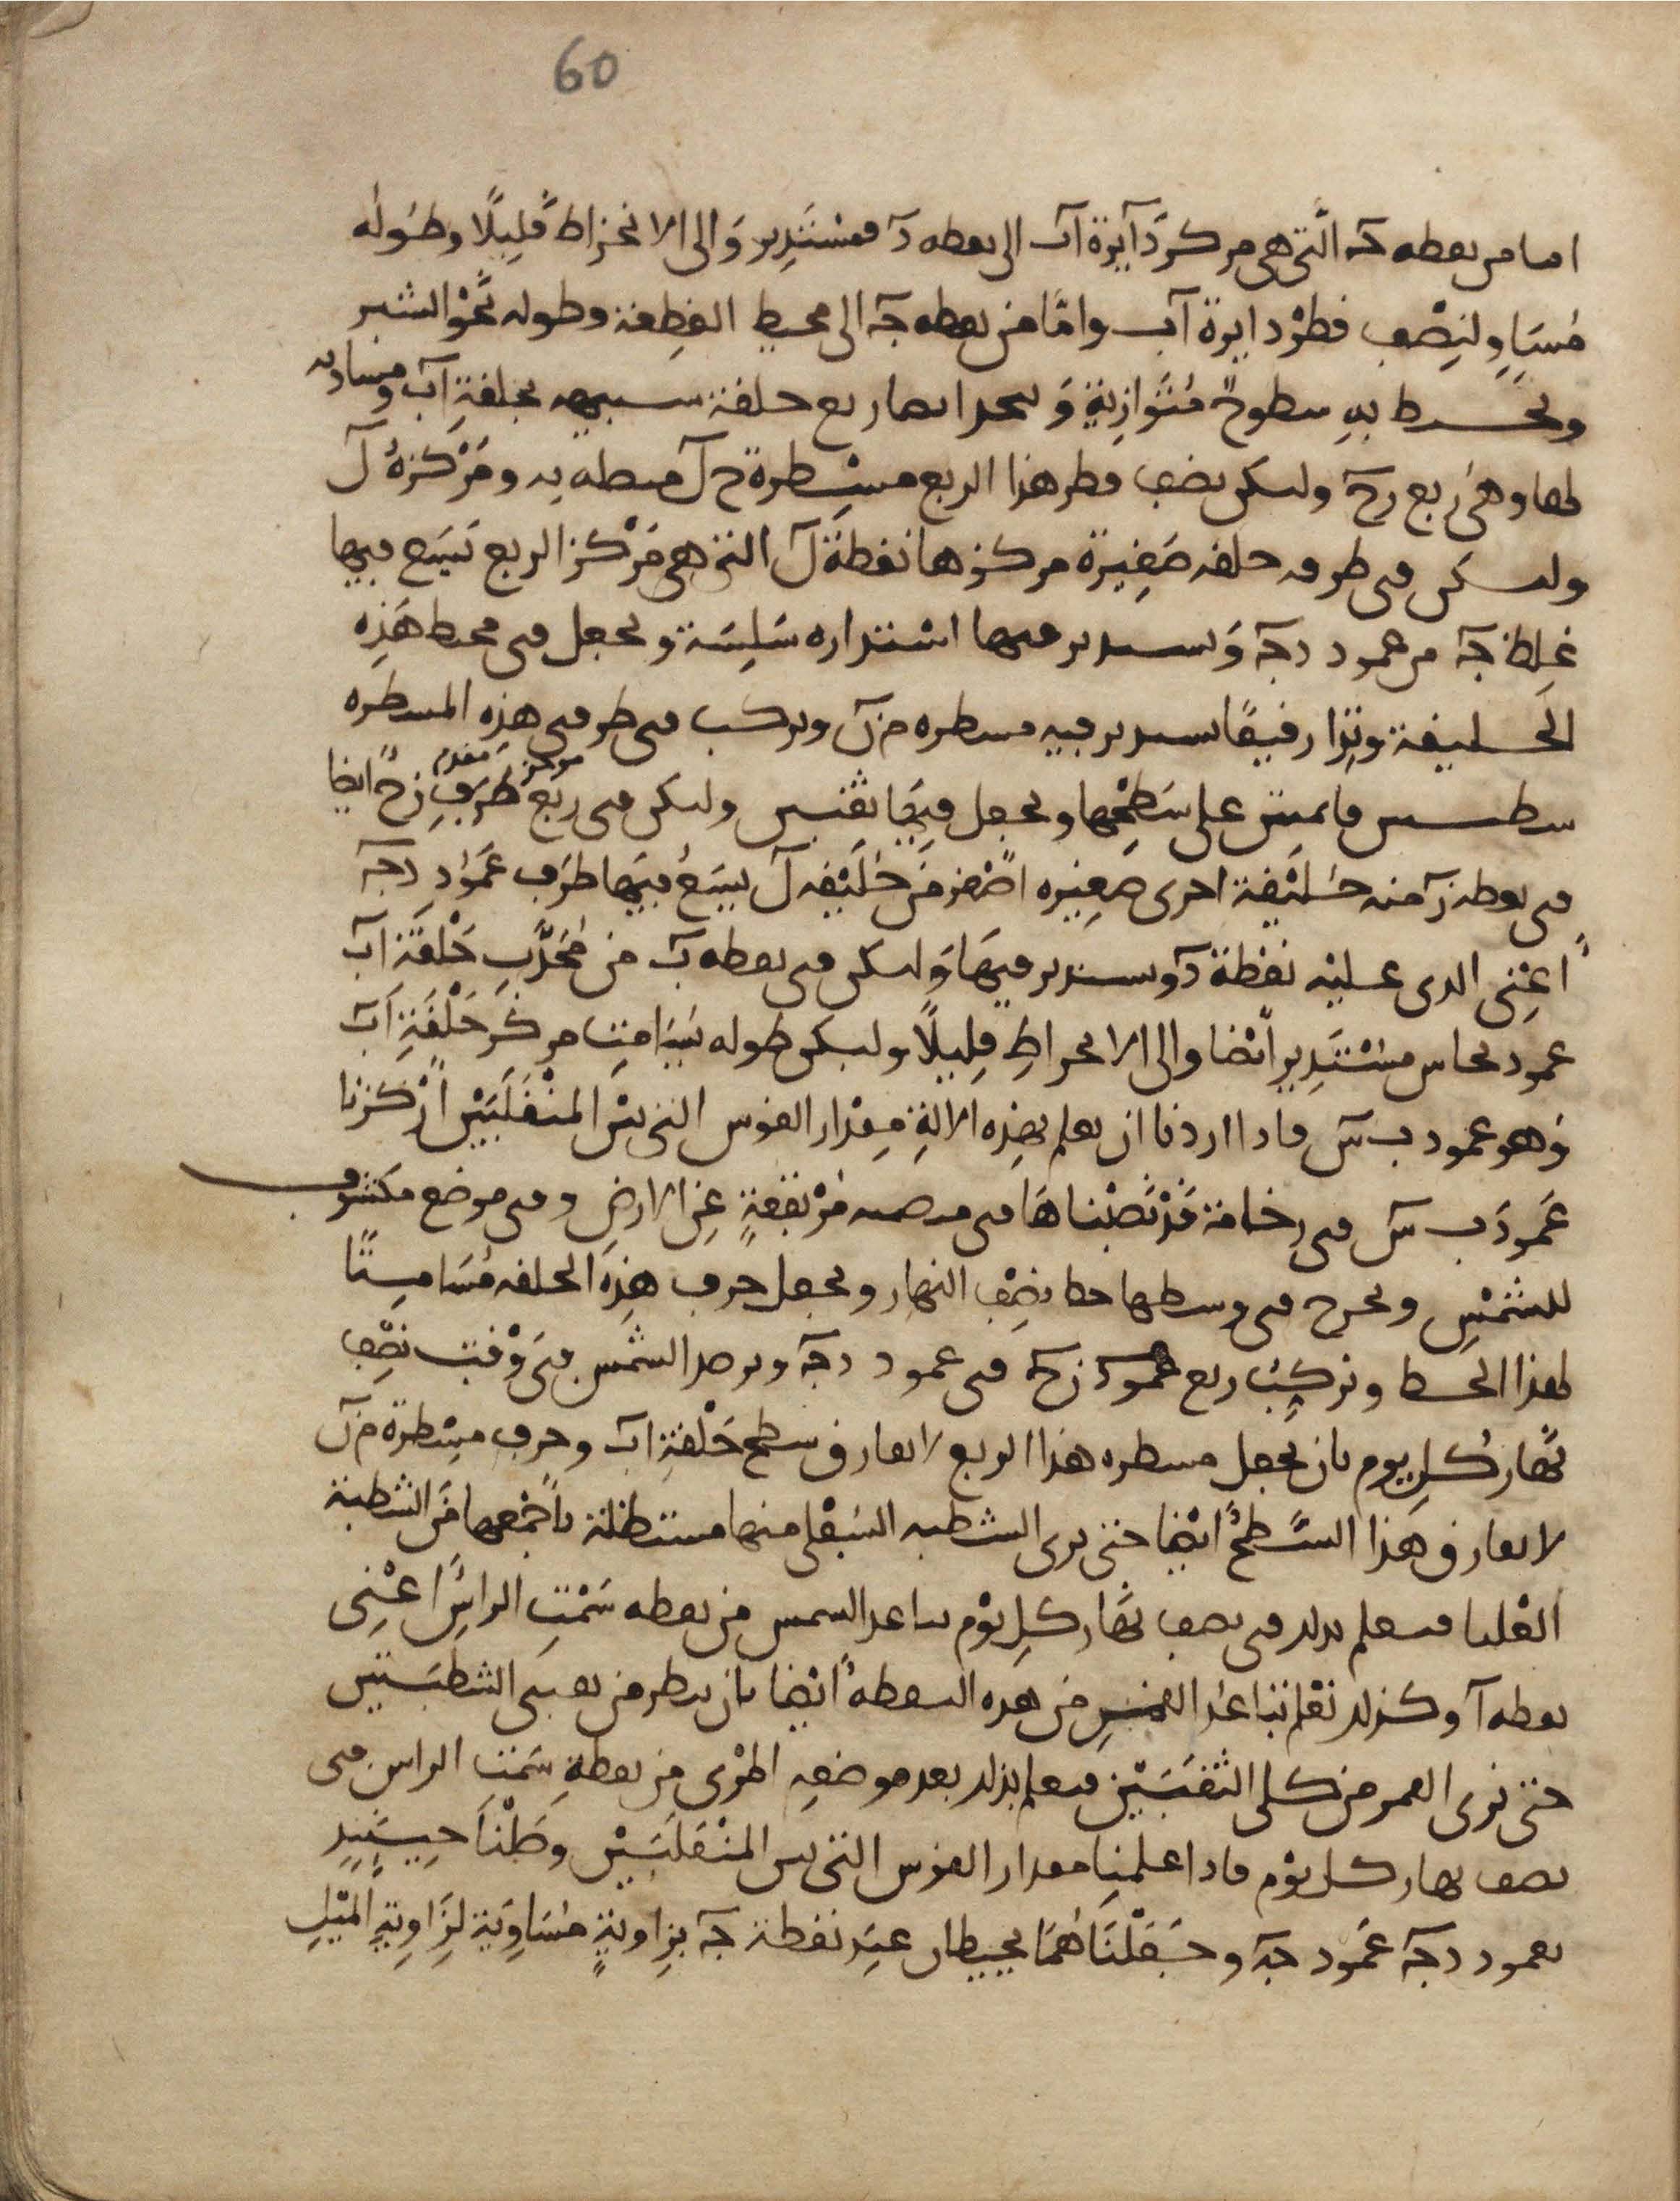 60
اما من نقطة جـ التي هي مركز دايرة اب الى نقطة د فمستدير والى الانخراط قليلا وطوله
مساو لنصف قطر دايرة اب واما من نقطة جـ الى محيط القطعة وطوله نحو الشبر
وتحيط به سطوح متوازية و ربع حلقة شبيهة بحلقة اب ومساوية
لها وهي ربع زح وليكن نصف قطر هذا الربع مسطرة ح ل متصلة به ومركزه ل
وليكن في طرفه حلقة صغيرة مركزها نقطة ل التي هي مركز الربع تسع فيها
غلظ جـ من عمود دجه وتستدير فيها استدارة سلسة ونجعل في محيط هذه
الحليقة وتدا رقيقا يستدير فيه مسطرة م ن ونركب في طرفي هذه المسطرة
شطبتين قايمتين على سطحها ونجعل فيها ثقبين وليكن في ربع طرف زح ايضا
موخر مقدم
في نقطة ز منه حليقة اخرى صغيرة اصغر من حليقة ل يسع فيها طرف عمود دجه
اعني الذي عليه نقطة د ويستدير فيها وليكن في نقطة ب من محدب حلقة اب
عمود نحاس مستدير ايضا والى الانخراط قليلا وليكن طوله يسامت مركز حلقة اب
وهو عمود ب س فاذا اردنا ان نعلم بهذه الالة مقدار القوس التي بين المنقلبين اركزنا
عمود ب س في رخامة قد نصبناها في مرتفعة عن الارض وفي موضع مكشوف
للشمس ونخرج في وسطها خط نصف النهار ونجعل حرف هذه الحلقة مسامتا
لهذا الخط ونركب ربع زح في عمود دجه ونرصد الشمس في وقت نصف
نهار كل يوم بان نجعل مسطرة هذا الربع لا تفارق سطح حلقة اب وحرف مسطرة م ن
لا تفارق هذا السطح ايضا حتى نرى الشطبة السفلى منها مستظلة باجمعها من الشطبة
العليا فنعلم بذلك في نصف نهار كل يوم تباعد الشمس من نقطة سمت الراس اعني
نقطة ا وكذلك نعلم تباعد القمر من هذه النقطة ايضا بان ننظر من ثقبي الشطبتين
حتى نرى القمر من كلى الثقبتين فنعلم بذلك بعد موضعه المرى من نقطة سمت الراس في
نصف نهار كل يوم فاذا علمنا مقدار القوس التي بين المنقلبين وصلنا حينيذ
بعمود دجه عمود جه وجعلناهما يحيطان عند نقطة جـ بزاوية مساوية لزاوية الميل